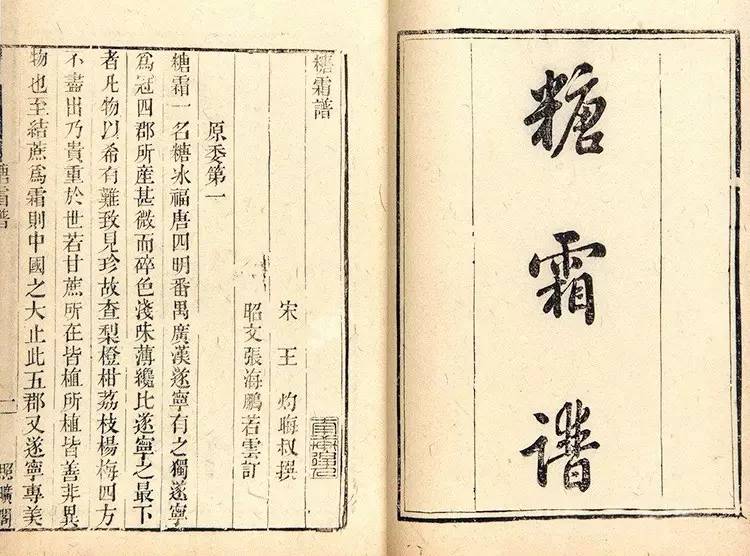 糖霜譜
糖霜譜
宋 王 灼晦叔撰
昭文張海鵬若雲訂
原委第一
糖霜一名糖冰福唐四明番禺廣漢遂寧有之獨遂寧
爲冠四郡所産甚微而碎色淺味薄纔比遂寧之最下
者凡物以希有難致見珍故查梨橙柑荔枝楊梅四方
不盡出乃貴重於世若甘蔗所在皆植所植皆善非異
物也至結蔗爲霜則中國之大止此五郡又遂寧專美
糖霜譜 一 照曠閣